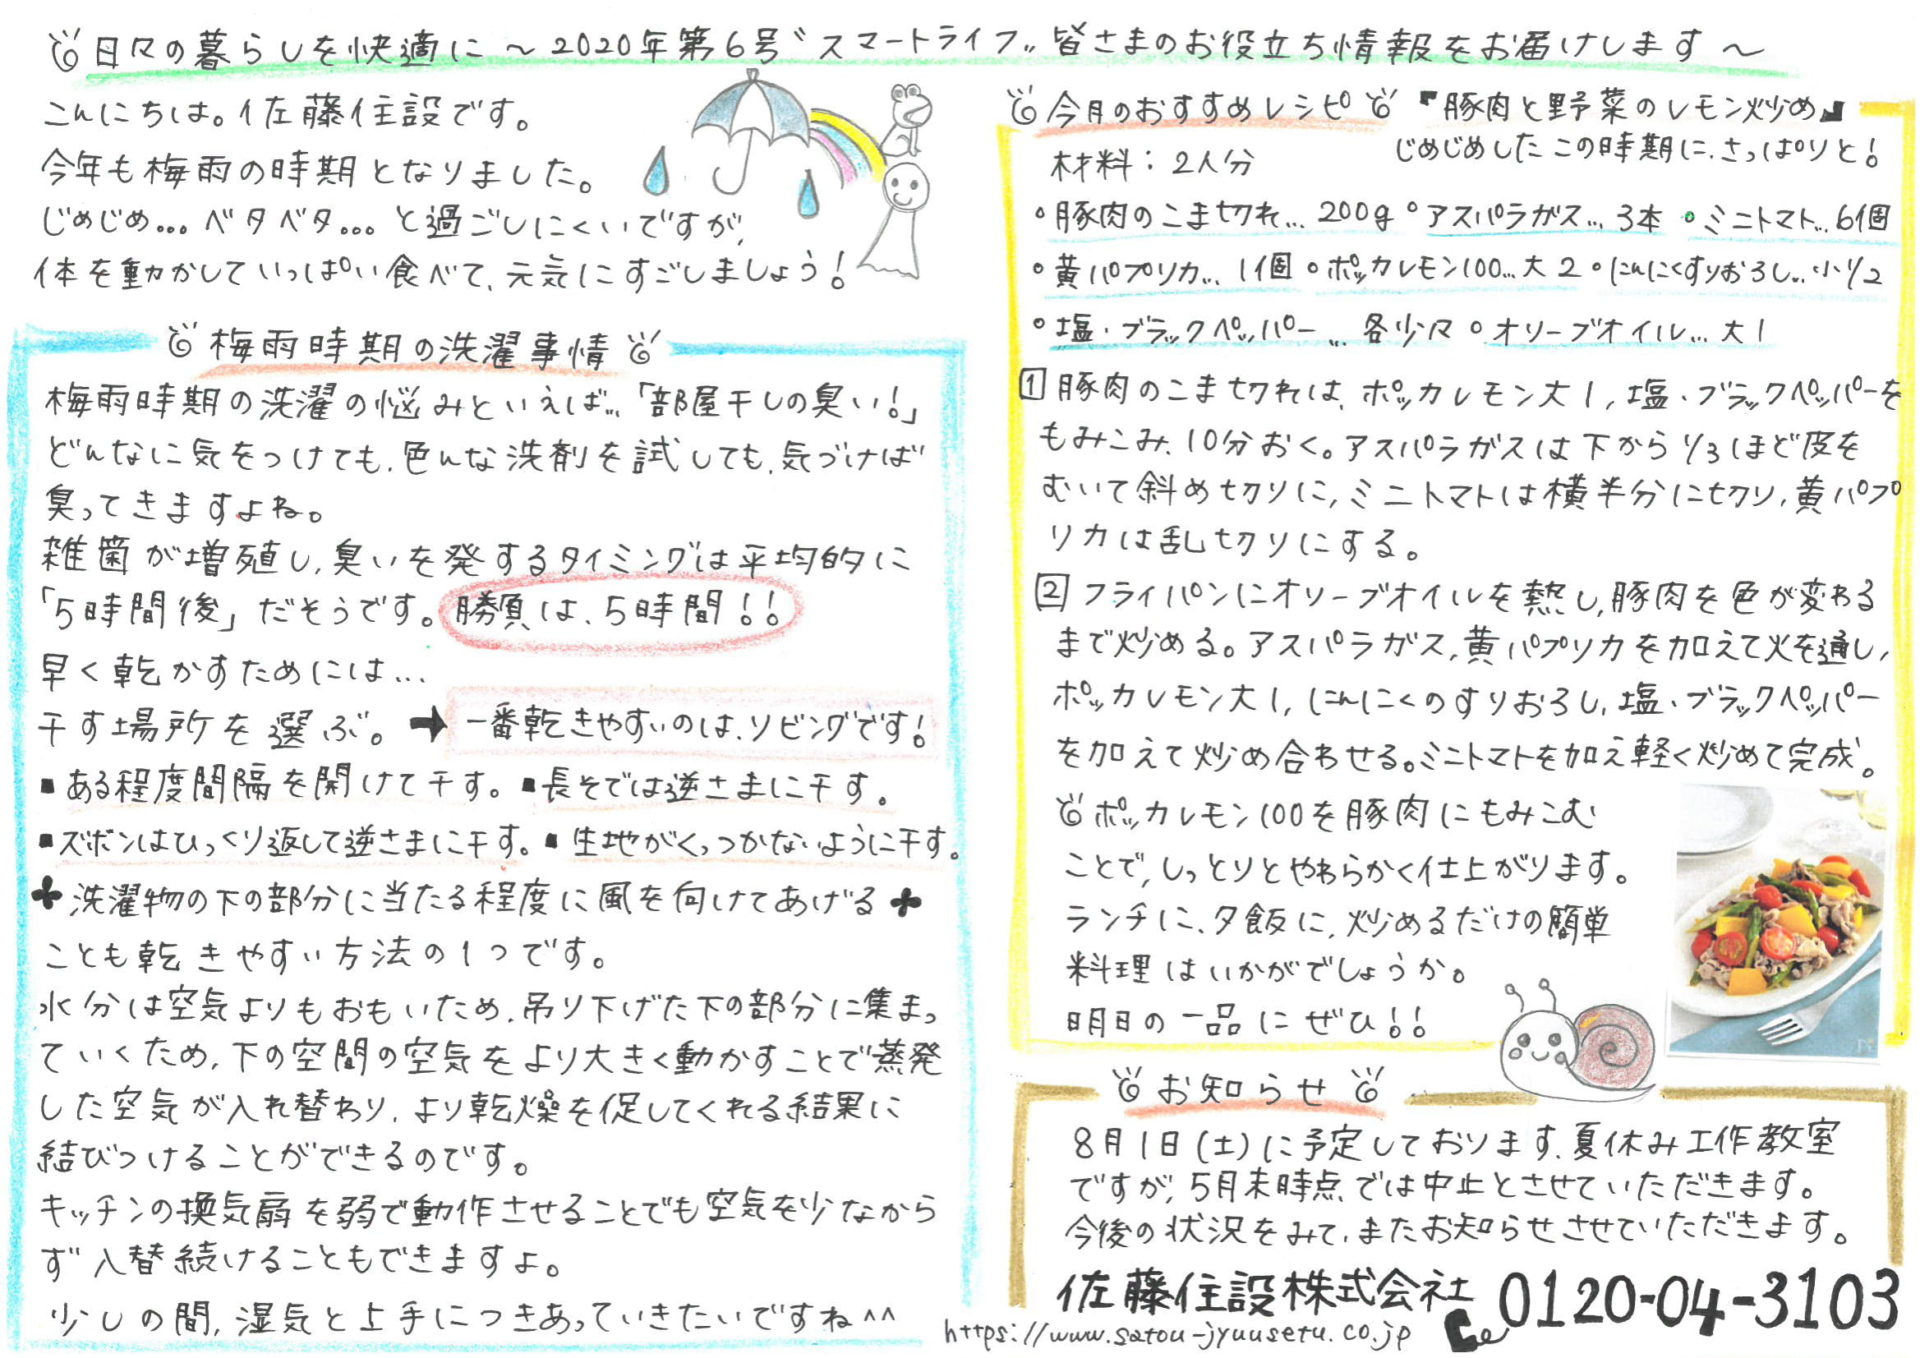 日々の暮らしを快適に ～2020年第6号〝スマートライフ〟皆さまのお役立ち情報をお届けします～
こんにちは。佐藤住設です。
今年も梅雨の時期となりました。
じめじめ…ベタベタ…と過ごしにくいですが、
体を動かしていっぱい食べて、元気にすごしましょう!
梅雨時期の洗濯事情
梅雨時期の洗濯の悩みといえば…「部屋干しの臭い!」
どんなに気をつけても、色んな洗剤を試しても、気づけば
臭ってきますよね。
雑菌が増殖し、臭いを発するタイミングは平均的に
「5時間後」だそうです。勝負は、5時間!!
早く乾かすためには…
干す場所を選ぶ。➡一番乾きやすいのは、リビングです!
▪ある程度間隔を開けて干す。▪長そでは逆さまに干す。
▪ズボンはひっくり返して逆さまに干す。▪生地がくっつかないように干す。
✤洗濯物の下の部分に当たる程度に風を向けてあげる✤
ことも乾きやすい方法の1つです。
水分は空気よりもおもいため、吊り下げた下の部分に集まっ
ていくため、下の空間の空気をより大きく動かすことで蒸発
した空気が入れ替わり、より乾燥を促してくれる結果に
結びつけることができるのです。
キッチンの換気扇を弱で動作させることでも空気を少なから
ず入替続けることもできますよ。
少しの間、湿気と上手につきあっていきたいですね^^
今月のおすすめレシピ 『豚肉と野菜のレモン炒め』
じめじめしたこの時期に、さっぱりと!
材料:2人分
・豚肉のこま切れ…200g・アスパラガス…3本・ミニトマト…6個
・黄パプリカ…1個・ポッカレモン100…大2・にんにくすりおろし…小1/2
・塩・ブラックペッパー…各少々・オリーブオイル…大1
1 豚肉のこま切れは、ポッカレモン大1、塩・ブラックペッパーを
もみこみ、10分おく。アスパラガスは下から1/3ほど皮を
むいて斜め切りに、ミニトマトは横半分に切り、黄パプ
リカは乱切りにする。
2 フライパンにオリーブオイルを熱し、豚肉を色が変わる
まで炒める。アスパラガス、黄パプリカを加えて火を通し、
ポッカレモン大1、にんにくのすりおろし、塩・ブラックペッパー
を加えて炒め合わせる。ミニトマトを加え軽く炒めて完成。
ポッカレモン100を豚肉にもみこむ
ことで、しっとりとやわらかく仕上がります。
ランチに、夕飯に、炒めるだけの簡単
料理はいかがでしょうか。
明日の一品にぜひ!!
お知らせ
8月1日(土)に予定しております、夏休み工作教室
ですが、5月末時点では中止とさせていただきます。
今後の状況をみて、またお知らせさせていただきます。
佐藤住設株式会社 0120-04-3103
https://www.satou-jyuusetu.co.jp